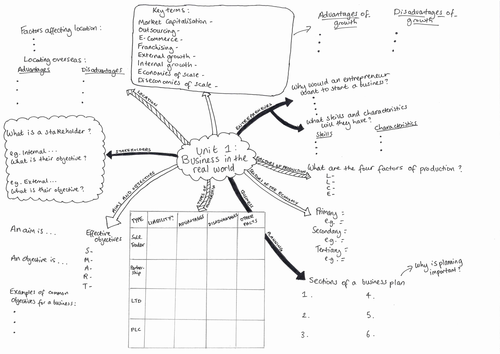 Factors affecting location :
Locating overseas :
Advantages
Disadvantages
Key terms :
Market Capitalisation -
Outsourcing -
E-Commerce -
Franchising -
External growth -
Internal growth -
Economies of scale -
Diseconomies of scale -
Advantages of growth
Disadvantages of growth
Why would an entrepreneur
want to start a business?
What skills and characteristics
will they have?
Skills
Characteristics
What is a stakeholder ?
eg. Internal ...
What is their objective?
eg. External ...
What is their objective?
STAKEHOLDERS
LOCATION
ENTREPRENEURS
Unit 1:
Business in the
real world
AIMS AND OBJECTIVES
What are the four factors of production ?
L-
L-
C-
E-
Primary =
eg. =
Secondary =
eg. =
Tertiary =
eg. =
An aim is ...
An objective is ...
Effective
objectives
S-
M-
A-
R-
T-
Examples of common
objectives for a business :
TYPE:
LIABILITY?
ADVANTAGES
DISADVANTAGES
OTHER FACTS
Sole
Trader
Partner-
ship
LTD
PLC
PLANNING
Sections of a business plan
Why is planning
important?
1.
2.
3.
4.
5.
6.